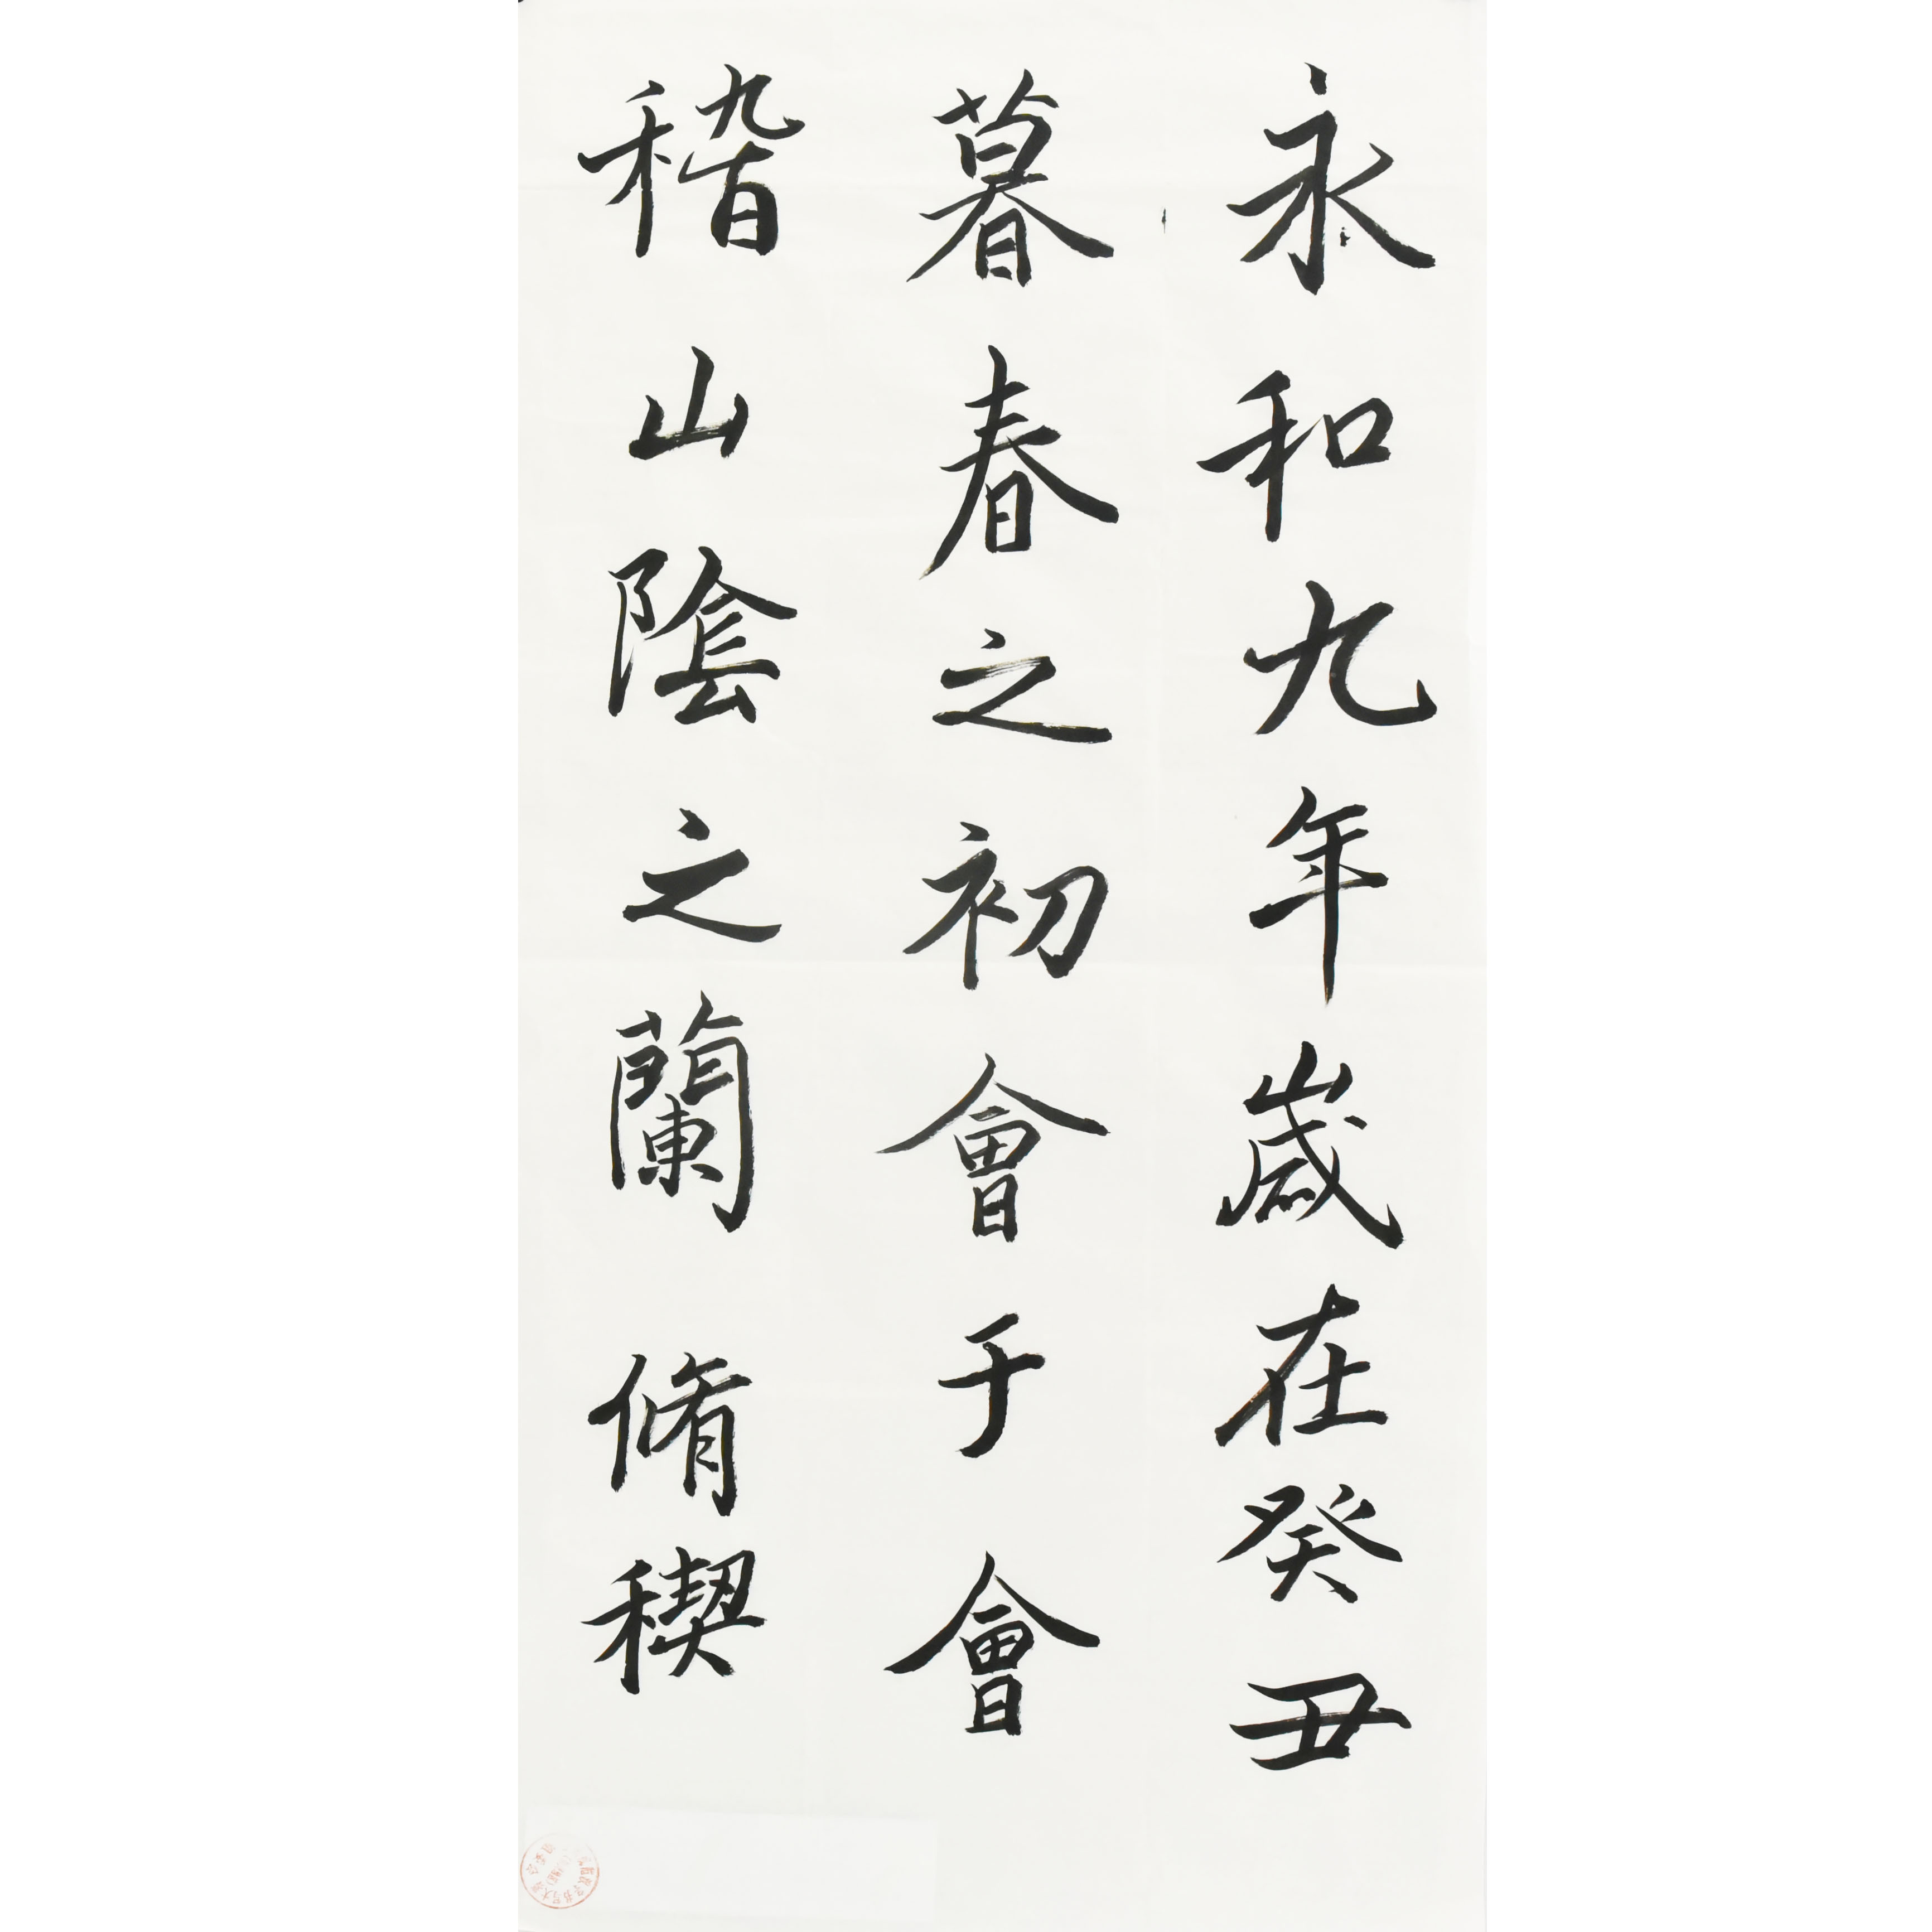 永和九年歲在癸丑
暮春之初會于會
稽山陰之蘭脩稧